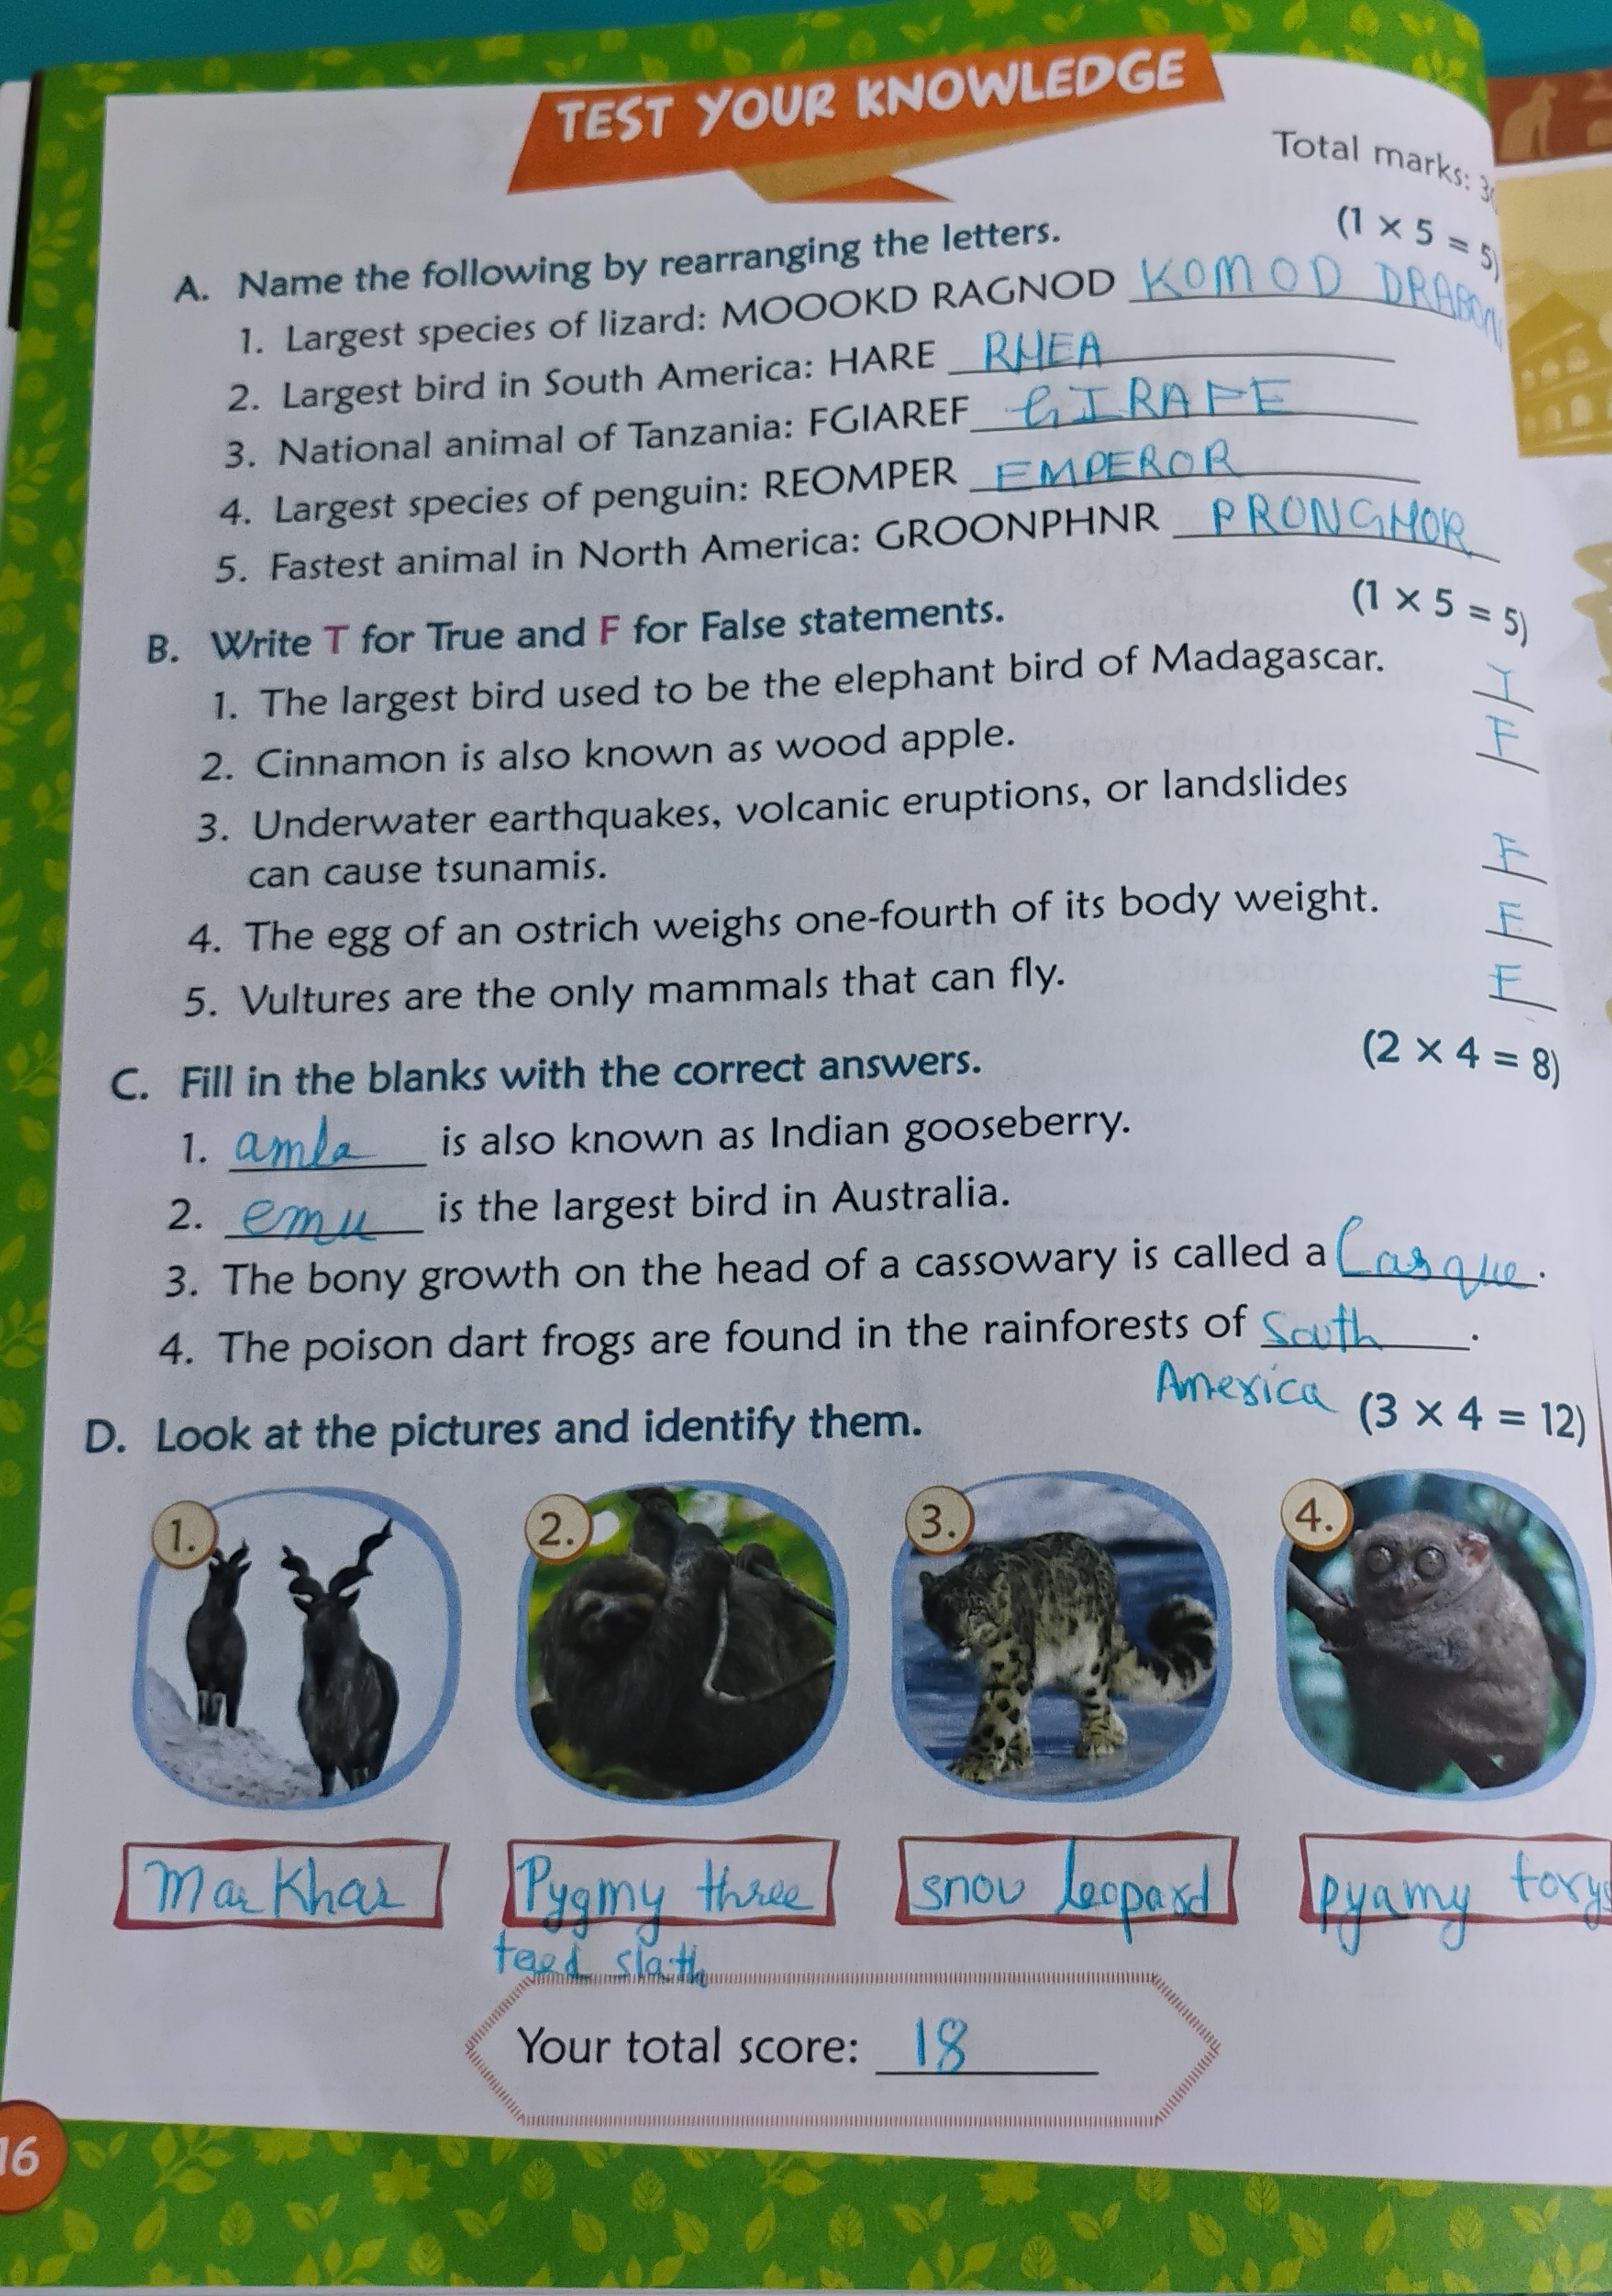 TEST YOUR KNOWLEDGE
Total marks: 30
A. Name the following by rearranging the letters. (1 × 5 = 5)
1. Largest species of lizard: MOOOKD RAGNOD KOMOD DRAGON
2. Largest bird in South America: HARE RHEA
3. National animal of Tanzania: FGIAREF GIRAFE
4. Largest species of penguin: REOMPER EMPEROR
5. Fastest animal in North America: GROONPHNR PRONGHOR
B. Write T for True and F for False statements. (1 × 5 = 5)
1. The largest bird used to be the elephant bird of Madagascar. T
2. Cinnamon is also known as wood apple. F
3. Underwater earthquakes, volcanic eruptions, or landslides
can cause tsunamis. F
4. The egg of an ostrich weighs one-fourth of its body weight. F
5. Vultures are the only mammals that can fly. F
C. Fill in the blanks with the correct answers. (2 × 4 = 8)
1. amla is also known as Indian gooseberry.
2. emu is the largest bird in Australia.
3. The bony growth on the head of a cassowary is called a Casque.
4. The poison dart frogs are found in the rainforests of South.
America
D. Look at the pictures and identify them. (3 × 4 = 12)
1. 2. 3. 4.
Markhar Pygmy three snow leopard pyamy
slath
Your total score: 18
16